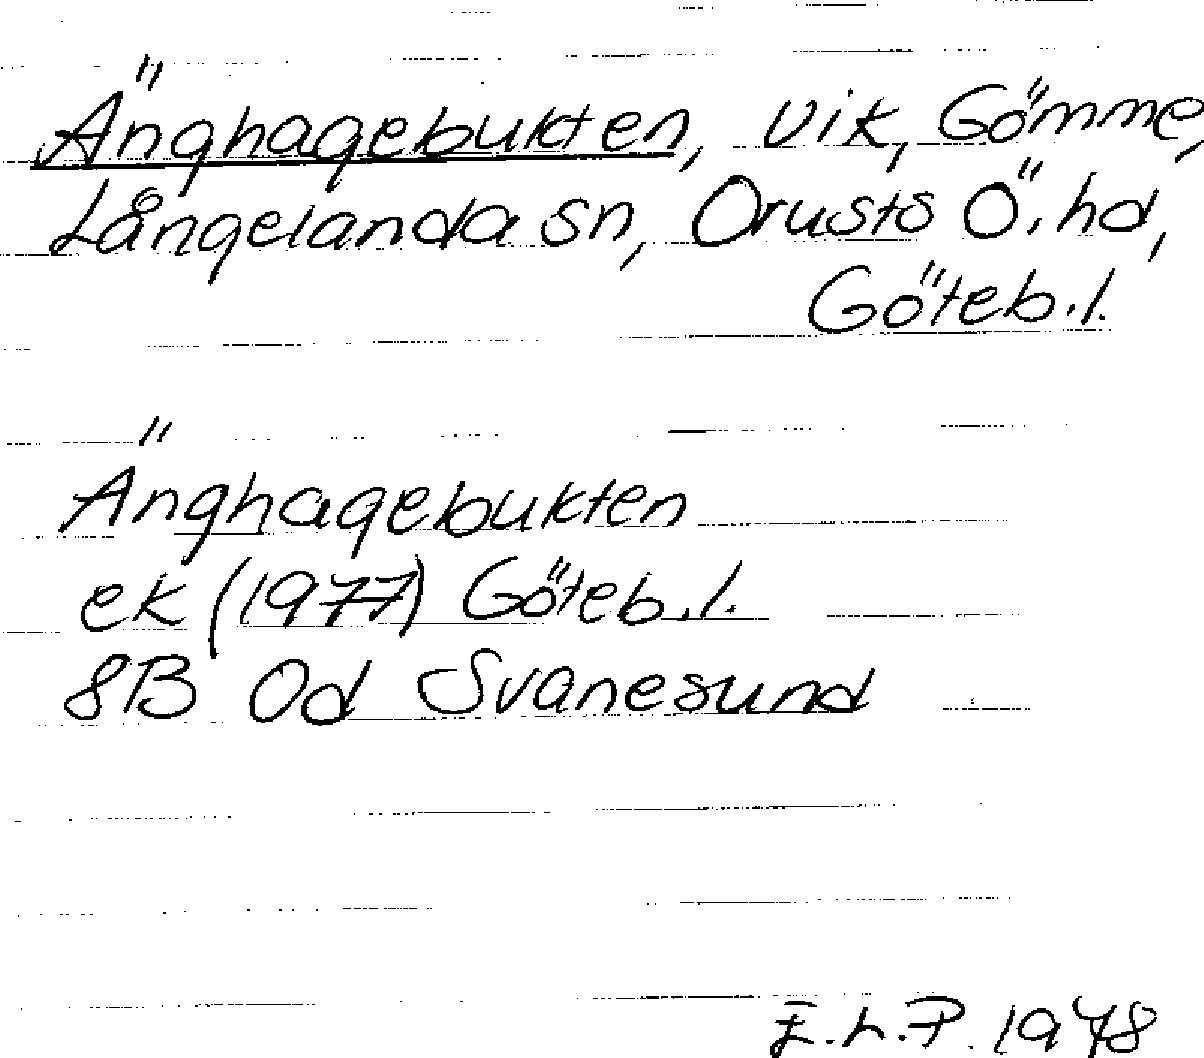 Änghagebukten, vik, Gömme,
Långelanda sn, Orusts Ö. hd,
Göteb. l.
Änghagebukten
ek (1977) Göteb. l.
8B Od Svanesund
E.L.P. 1978